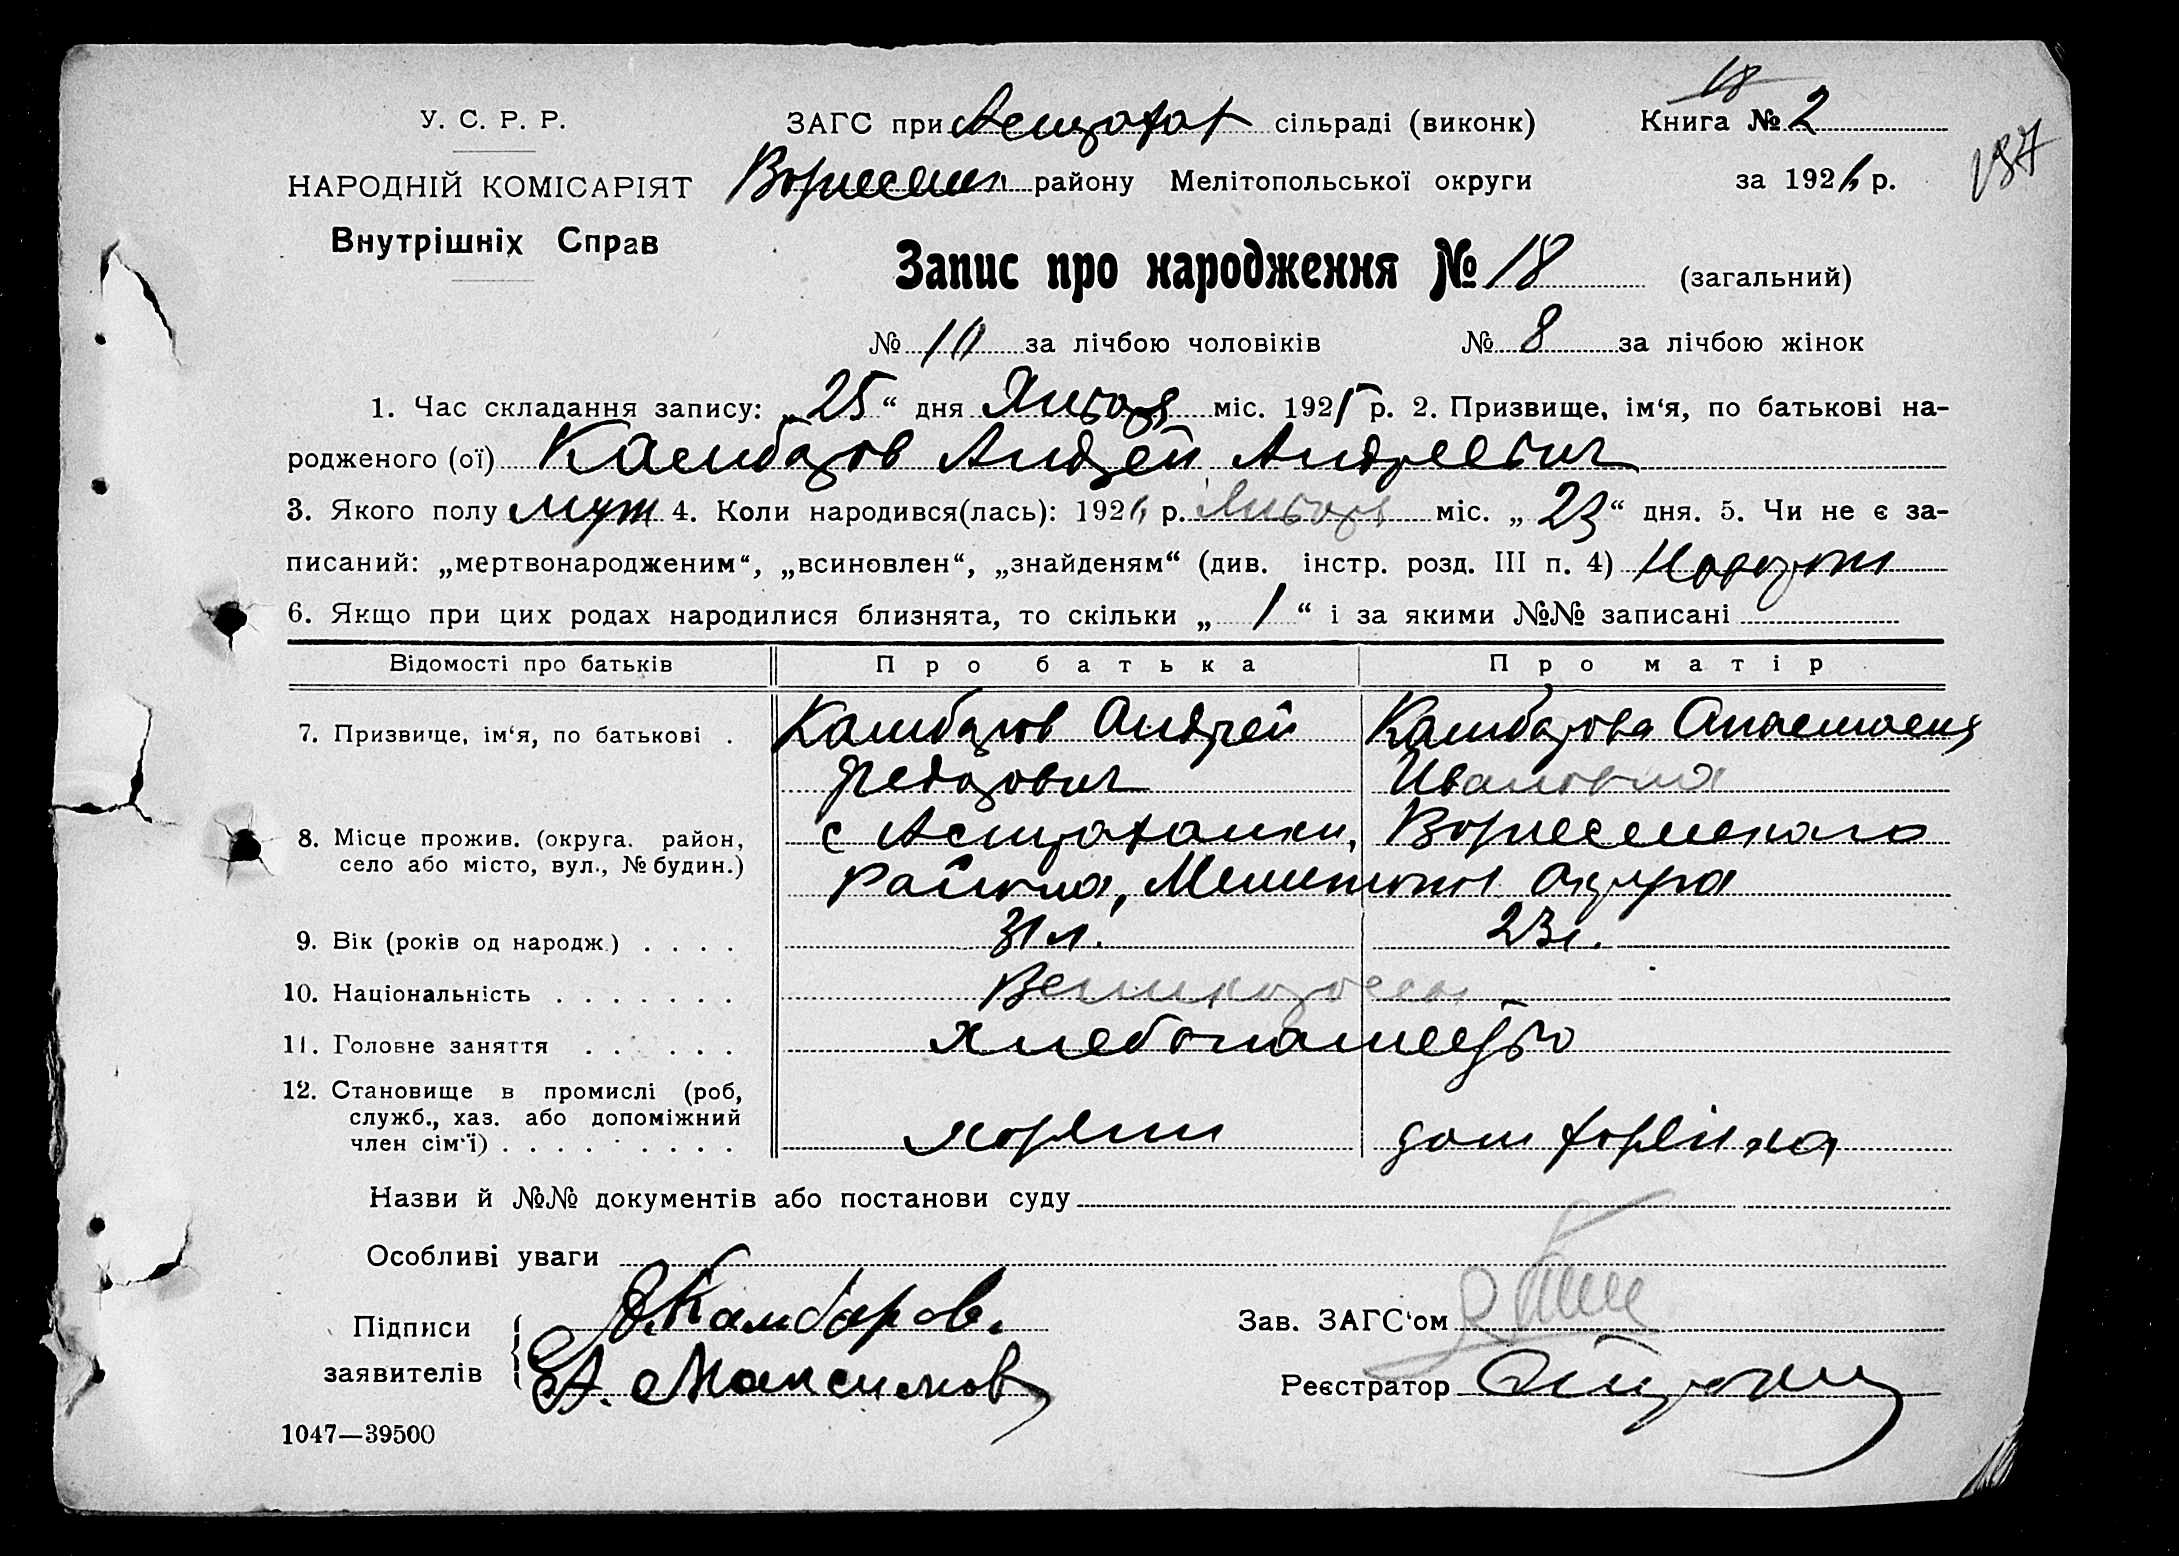 18
У. С. Р. Р. ЗАГС при Астрахан сільраді (виконк) Книга № 2
137
НАРОДНІЙ КОМІСАРІЯТ Вознесен районy Мелітопольської округи за 1926 р.
Внутрішніх Справ
Запис про народження № 18 (загальний)
№ 10 за лічбою чоловіків № 8 за лічбою жінок
1. Час складання запису: „25“ дня Января міс. 192 р. 2. Призвище, ім‘я, по батькові на-
родженого (ої) Камбаров Андрей Андреевич
3. Якого полу муж 4. Коли народився(лась): 1926 р. Января міс. „23“ дня. 5. Чи не є за-
писаний: „мертвонародженим“, „всиновлен“, „знайденям“ (див. інстр. розд. III п. 4)
6. Якщо при цих родах народилися близнята, то скільки „ 1 “ і за якими №№ записані
Відомості про батьків Про батька Про матір
7. Призвище, ім‘я, по батькові . Камбаров Андрей Камбарова Анастасия
Федорович Ивановна
8. Місце прожив. (округа. район, с Астраханки, Вознесенского
село або місто, вул., № будин.) Района, Мелитопол Округа
9. Вік (років од народж.) . . . . 31 л. 23 г.
10. Національність . . . . . . . Великоросы
11. Головне заняття . . . . . . Хлебопашество
12. Становище в промислі (роб,
служб., хаз. або допоміжний
член сім‘ї) . . . . . . . . хозяин дом хозяйка
Назви й №№ документів або постанови суду
Особливі уваги
Підписи А.Камбаров. Зав. ЗАГС‘ом
заявителів А. Максимов Реєстратор
1047—39500